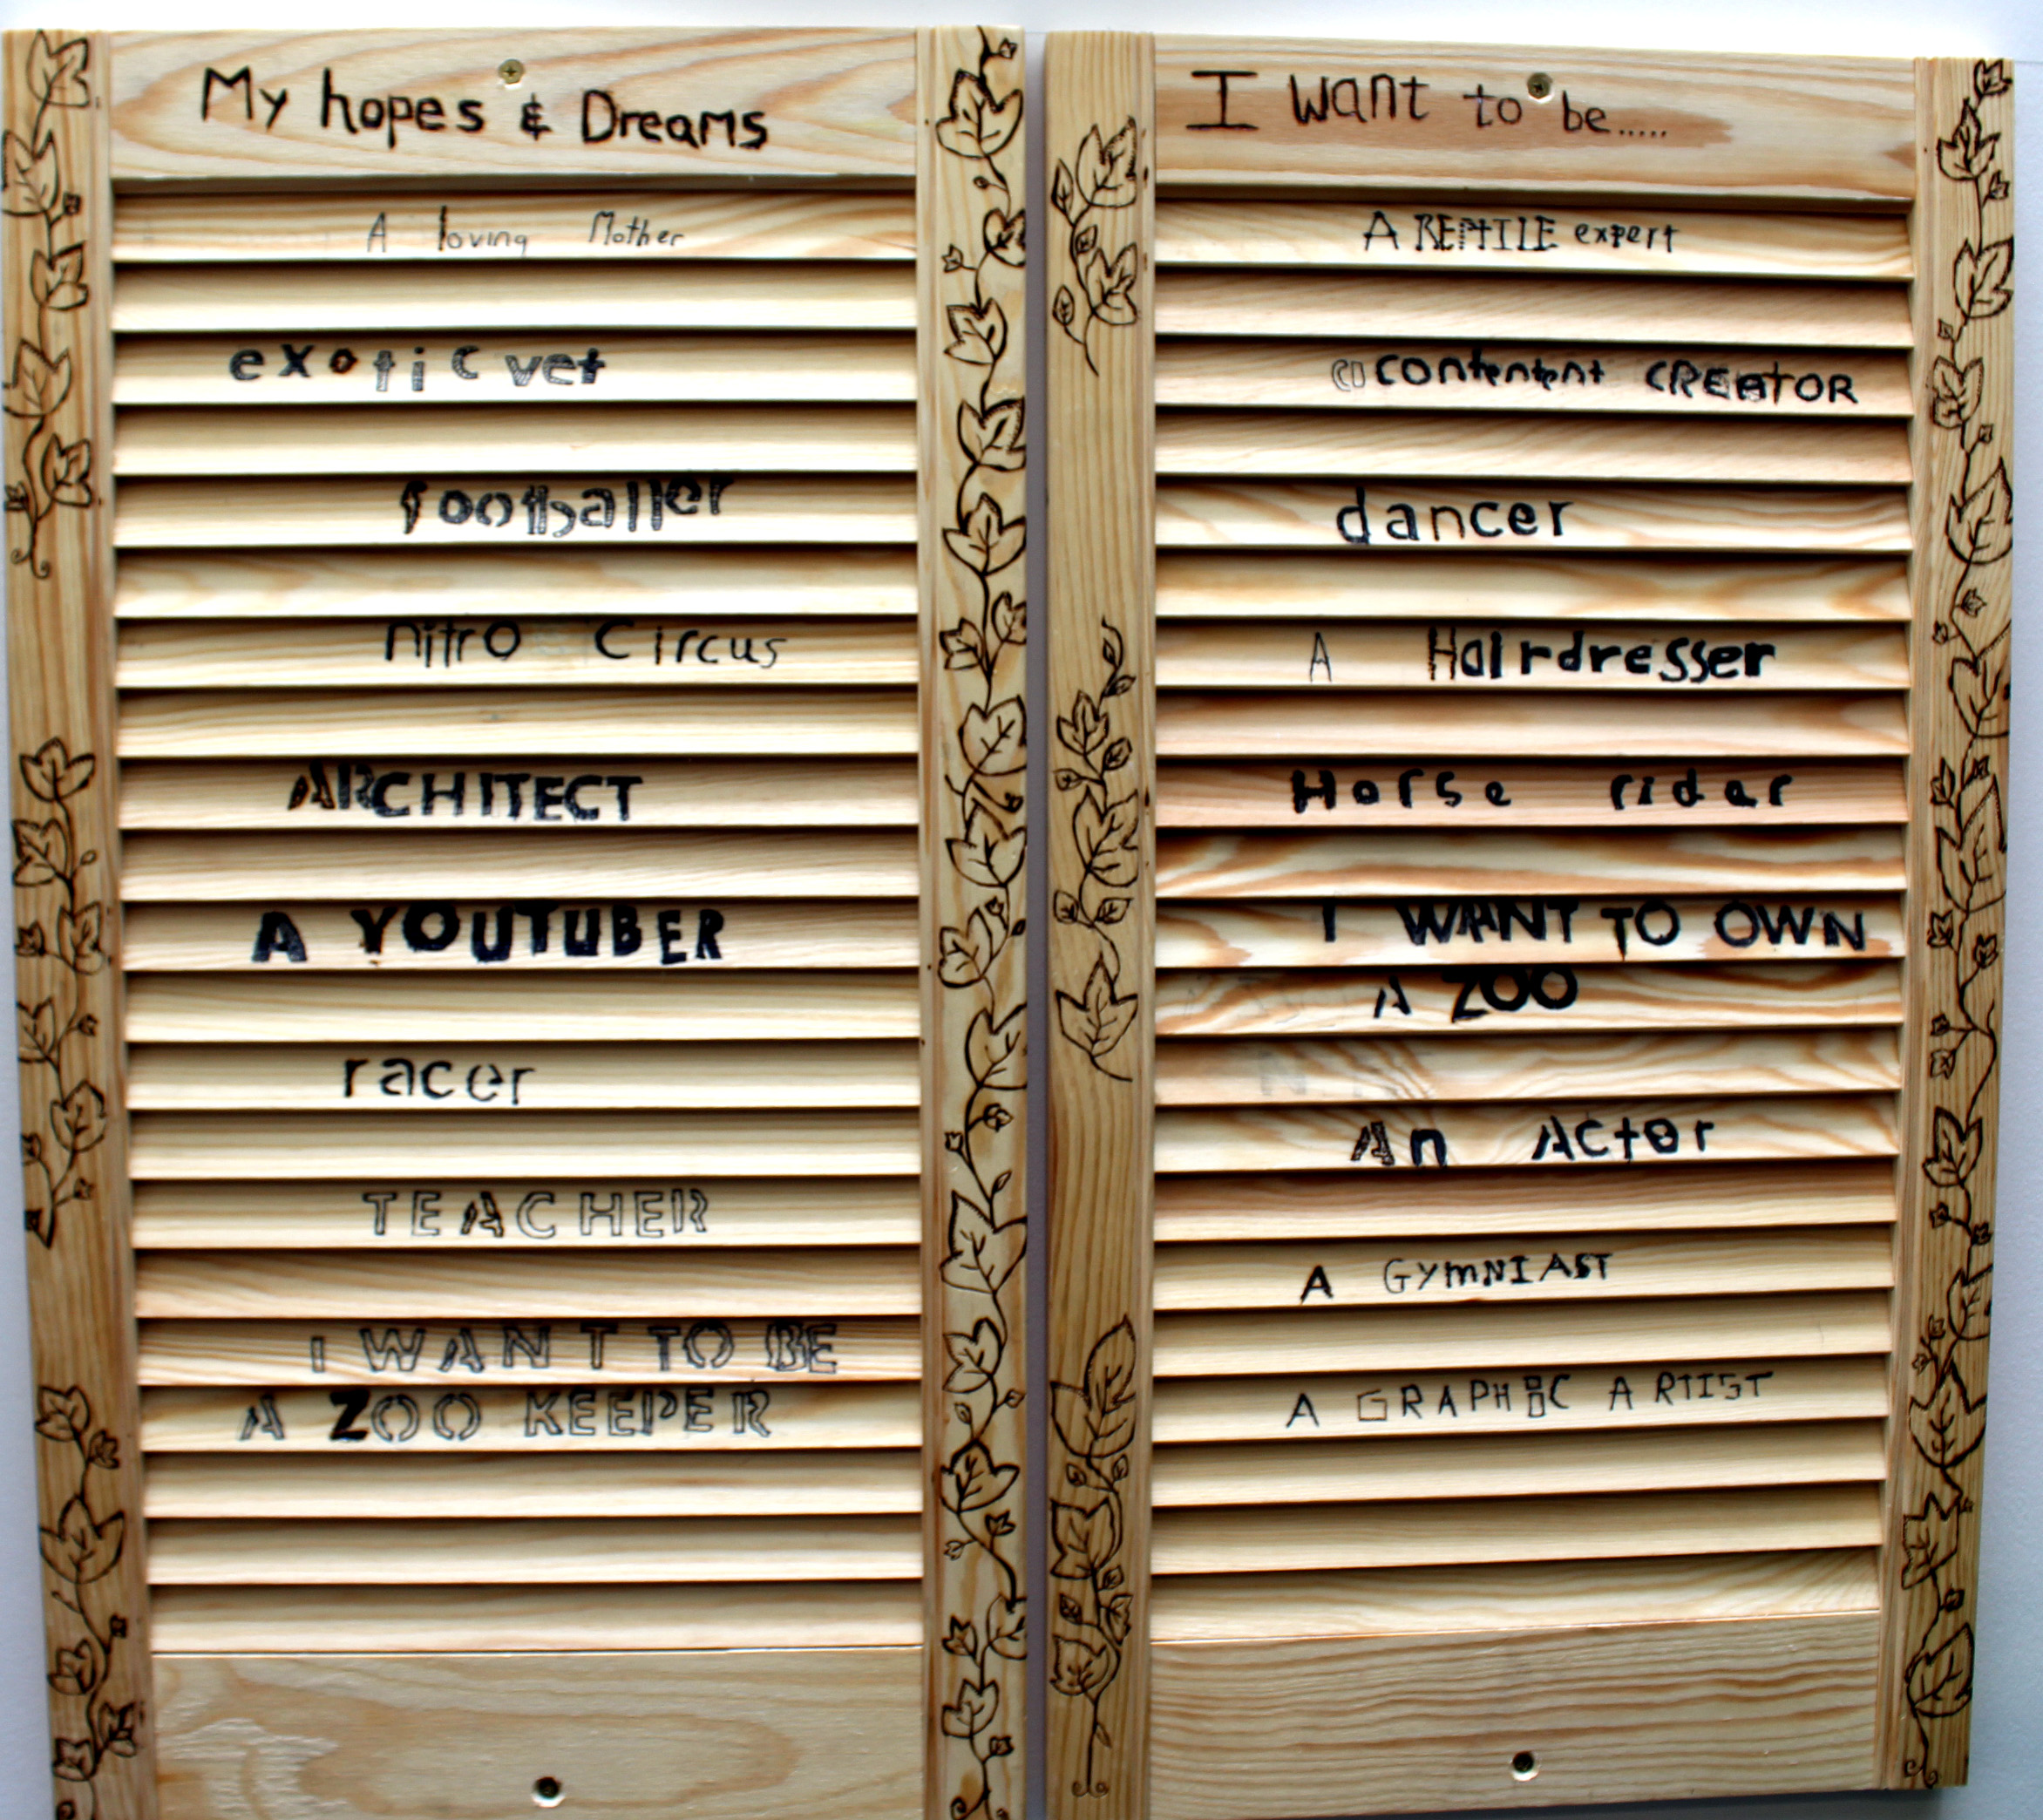 My hopes & Dreams
A loving Mother
exotic vet
footballer
nitro Circus
ARCHITECT
A YOUTUBER
racer
TEACHER
I WANT TO BE
A ZOO KEEPER
I want to be.....
A REPTILE expert
contentent CREATOR
dancer
A Hairdresser
Horse rider
I WANT TO OWN
A ZOO
An Actor
A GYMNIAST
A GRAPHIC ARTIST